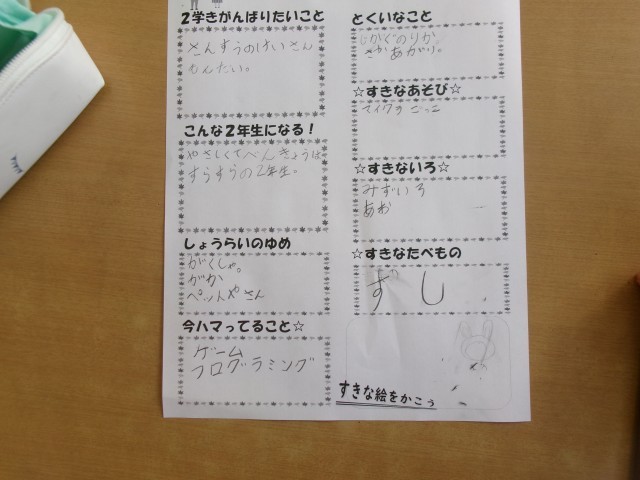 2学きがんばりたいこと
さんすうのけいさん
もんだい。
こんな2年生になる！
やさしくてべんきょうは
すらすらの2年生。
しょうらいのゆめ
がくしゃ。
がか
ペットやさん
今ハマってること☆
ゲーム
プログラミング
とくいなこと
さかあがり。
☆すきなあそび☆
マイクラごっこ
☆すきないろ☆
みずいろ
あお
☆すきなたべもの
すし
すきな絵をかこう